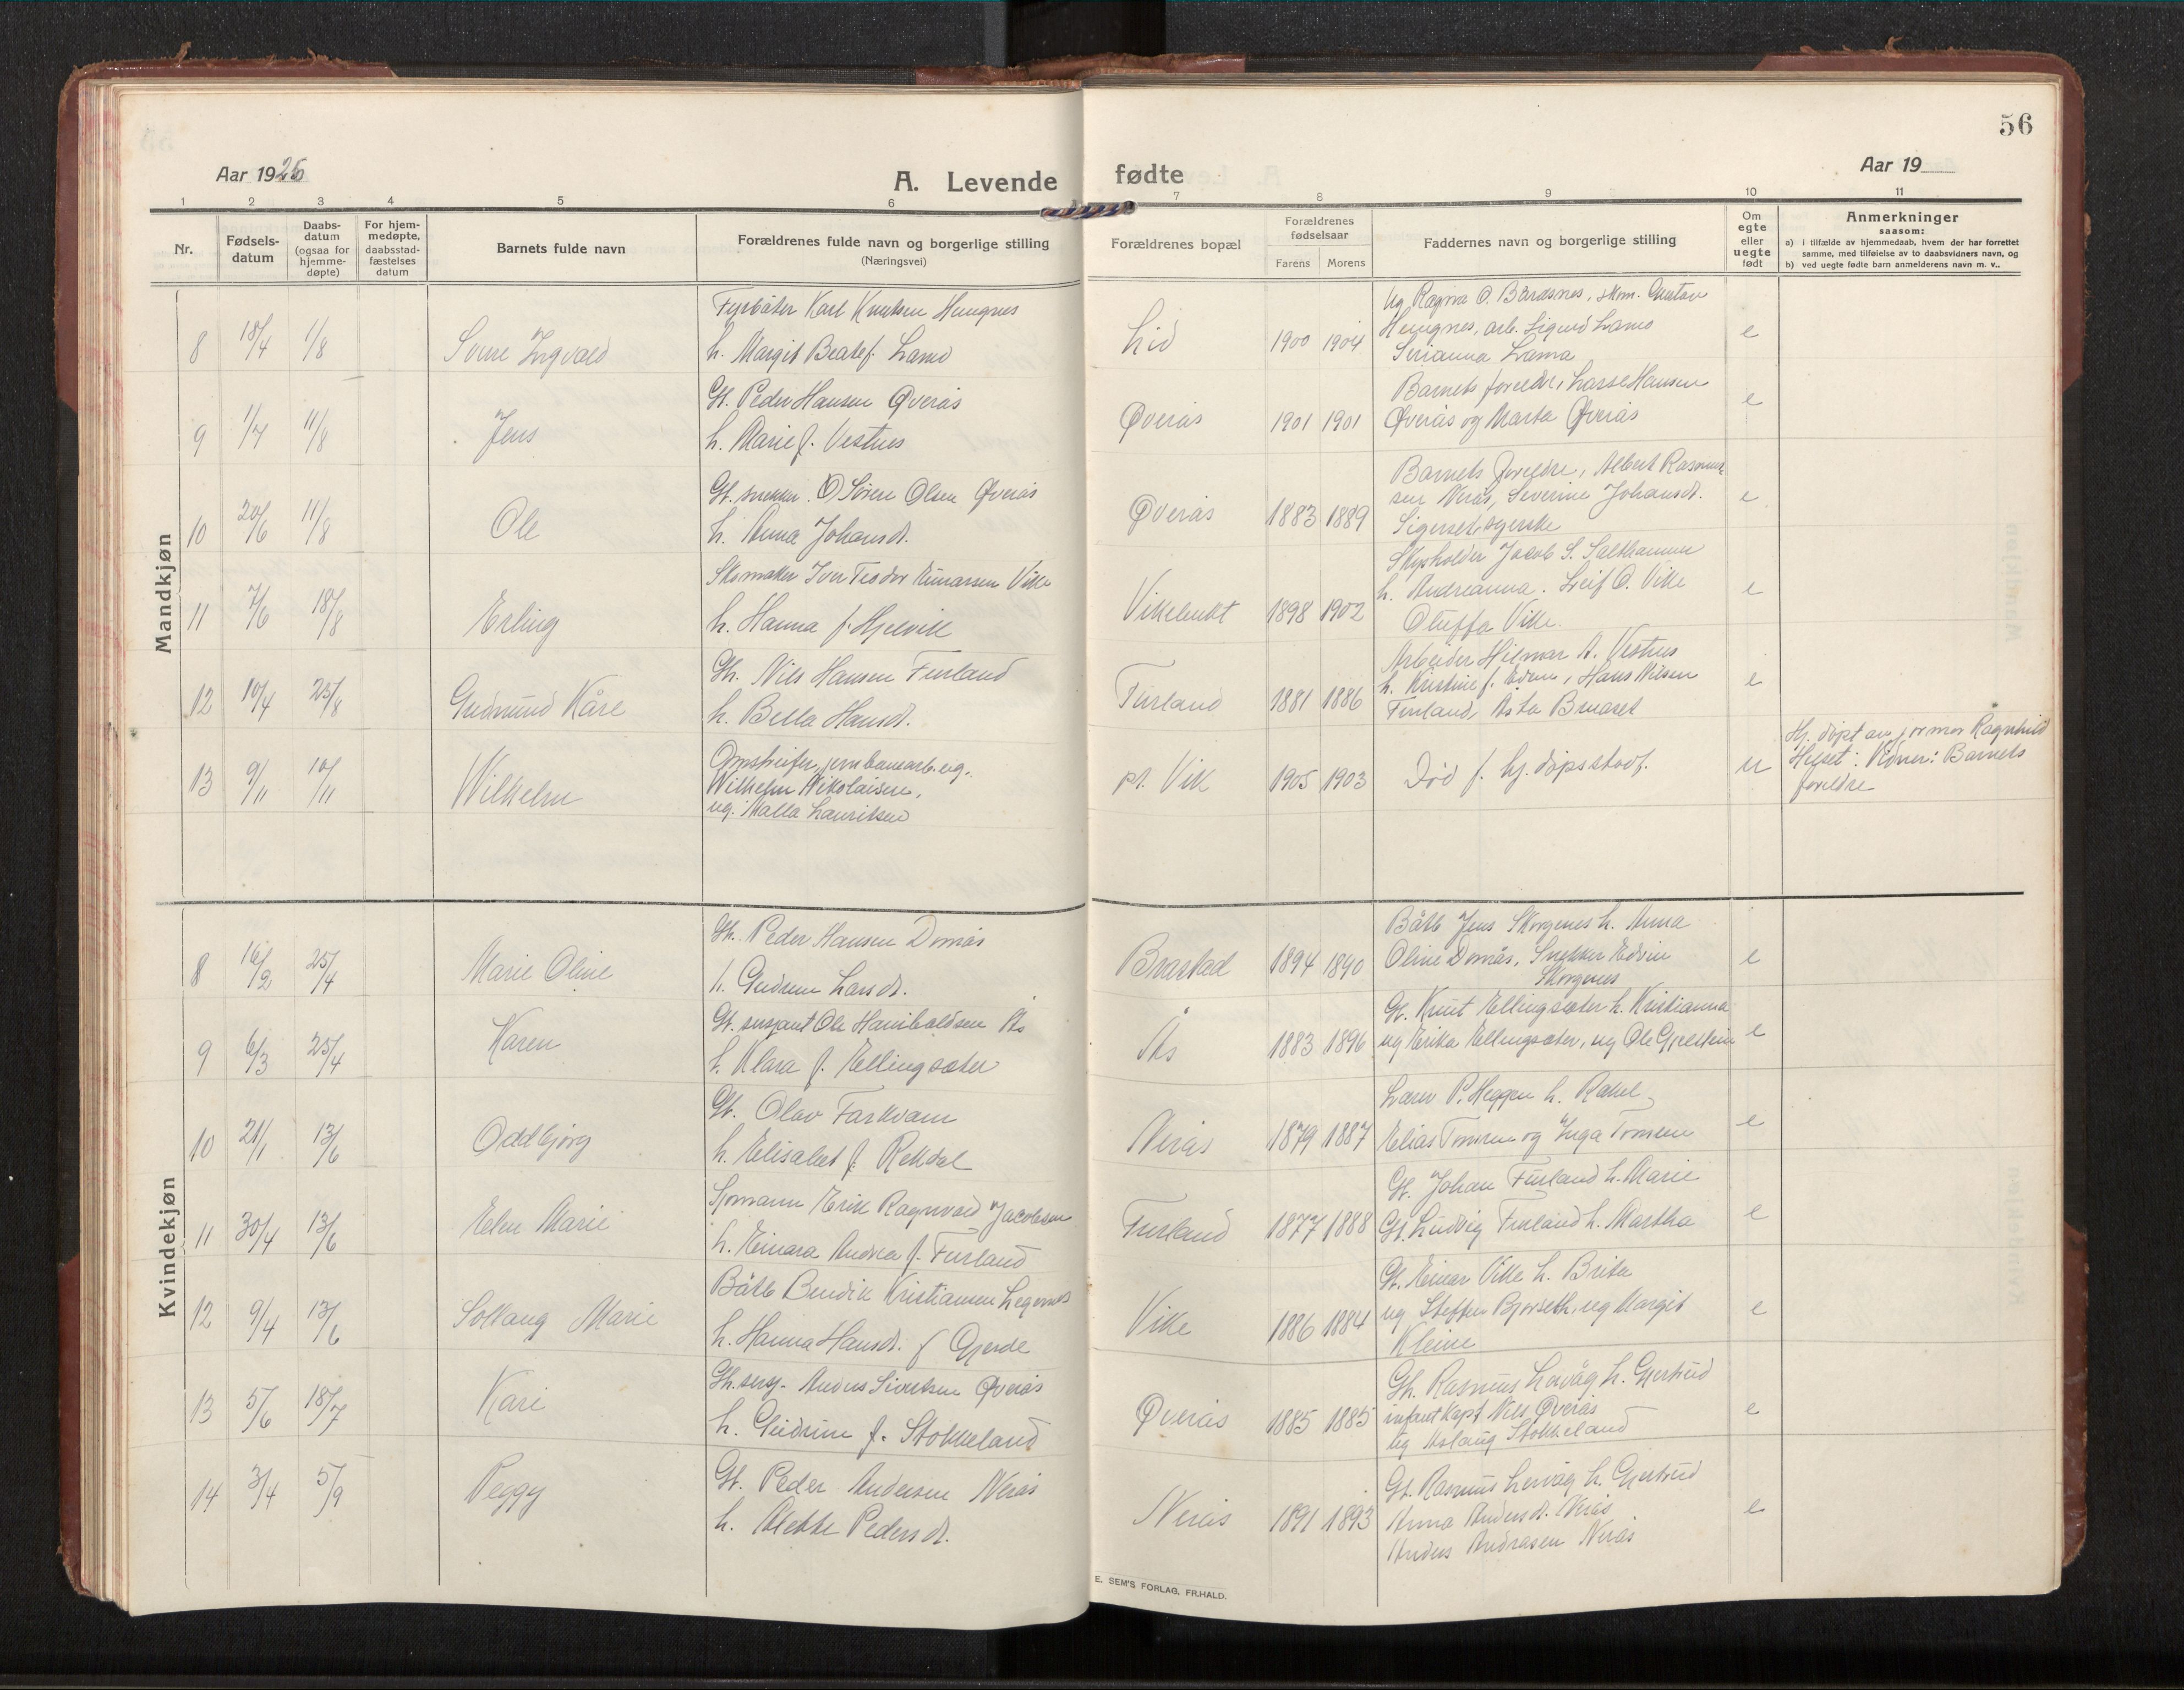 56
Aar 1926
A. Levende fødte
Aar 19
1 2 3 4 5 6 7 8 9 10 11
Nr.
Fødsels-
datum
Daabs-
datum
(ogsaa for
hjemme-
døpte)
For hjem-
medøpte,
daabsstad-
fæstelses
datum
Barnets fulde navn
Forældrenes fulde navn og borgerlige stilling
(Næringsvei)
Forældrenes bopæl
Forældrenes
fødselsaar
Farens Morens
Faddernes navn og borgerlige stilling
Om
egte
eller
uegte
født
Anmerkninger
saasom:
a) i tilfælde av hjemmedaab, hvem der har forrettet
samme, med tilføielse av to daabsvidners navn, og
b) ved uegte fødte barn anmelderens navn m. v..
Mandkjøn
8 18/4 1/8 Sverre Ingvald
Fyrbøter Karl Knutsen
h. Margit Beate f.
Lid 1900 1904
ug Ragna O. Baardsnes, Gustav
arb. Sigurd
e
9 1/7 11/8 Jens
Gb. Peder Hansen Øverås
h. Marie f. Vestnes
Øverås 1901 1901
Barnets foreldre, Lasse Hansen
Øverås og Marta Øverås
e
10 20/6 11/8 Ole
Gb. snekker. O Søren Olsen Øverås
h. Anna Johansd.
Øverås 1883 1889
Barnets foreldre, Albert Rasmus-
sen Nerås, Severine Johansd.
e
11 7/6 18/8 Erling
Skomaker Iver Teodor Einarsen Vike
h. Hanna f. Hjelvik
Vikebukt 1898 1902
Jacob S. Salthammer
h. Andreanna. Leif O. Vike
Oluffa Vike.
e
12 10/4 25/8 Gudmund Kåre
Gb. Nils Hansen Furland
h. Bella Hansd.
Furland 1881 1886
Arbeider Hilmar A. Vestnes
h. Kristine f. Hans Nilsen
Furland, Asta Bruaset
e
13 9/11 10/11 Wilhelm
jernbanearb. ug.
Wilhelm Nikolaisen,
ug. Malla Lauritsen
pt. Vik 1905 1903
Død f. hj. døpsstadf.
u
Hj. døpt av jormor Ragnhild
Helset: Vidner: Barnets
foreldre
Kvindekjøn
8 16/2 25/4 Marie Oline
Gb. Peder Hansen Domås
h. Gudrun Larsd.
Brastad 1894 1890
Båtb Jens Skorgenes h. Anna
Oline Domås, Snekker Edvin
Skorgenes
e
9 6/3 25/4 Karen
Gb. sersjant Ole Haniboldsen Ås
h. Klara f. Ellingsæter
Ås 1883 1896
Gb. Knut Ellingsæter h. Kristianna
ug Erika Ellingsæter, ug Ole
e
10 21/1 13/6 Oddbjørg
Gb. Olav Farkvam
h. Elisabet f. Rekdal
Nerås 1879 1887
Lærer P. Heggen h. Rakel
Elias Tomren og Inga Tomren
e
11 30/4 13/6 Elen Marie
Sjømann Erik Ragnvald Jacobsen
h. Einara Andrea f. Furland
Furland 1877 1888
Gb. Johan Furland h. Marie
Gb. Ludvig Furland h. Martha
e
12 9/4 13/6 Solvaug Marie
Båtb Bendik Kristiansen Legernes
h. Hanna Hansd. f Gjerde
Vike 1886 1884
Gb. Einar Vike h. Brite
ug Steffen Bjorseth, ug Margit
Kleive
e
13 5/6 18/7 Kari
Gb. serg. Anders Sivertsen Øverås
h. Gudrun f. Stokkeland
Øverås 1885 1885
Gb. Rasmus Lervåg h. Gjertrud
infant Kapt Nils Øverås
ug Aslaug Stokkeland
e
14 3/4 5/9 Peggy
Gb. Peder Andersen Nerås
h. Alette Pedersd.
Nerås 1891 1893
Gb. Rasmus Lervåg h. Gjertrud
Anna Andersd. Nerås
Anders Andrasen Nerås
e
E. SEM'S FORLAG, FR.HALD.